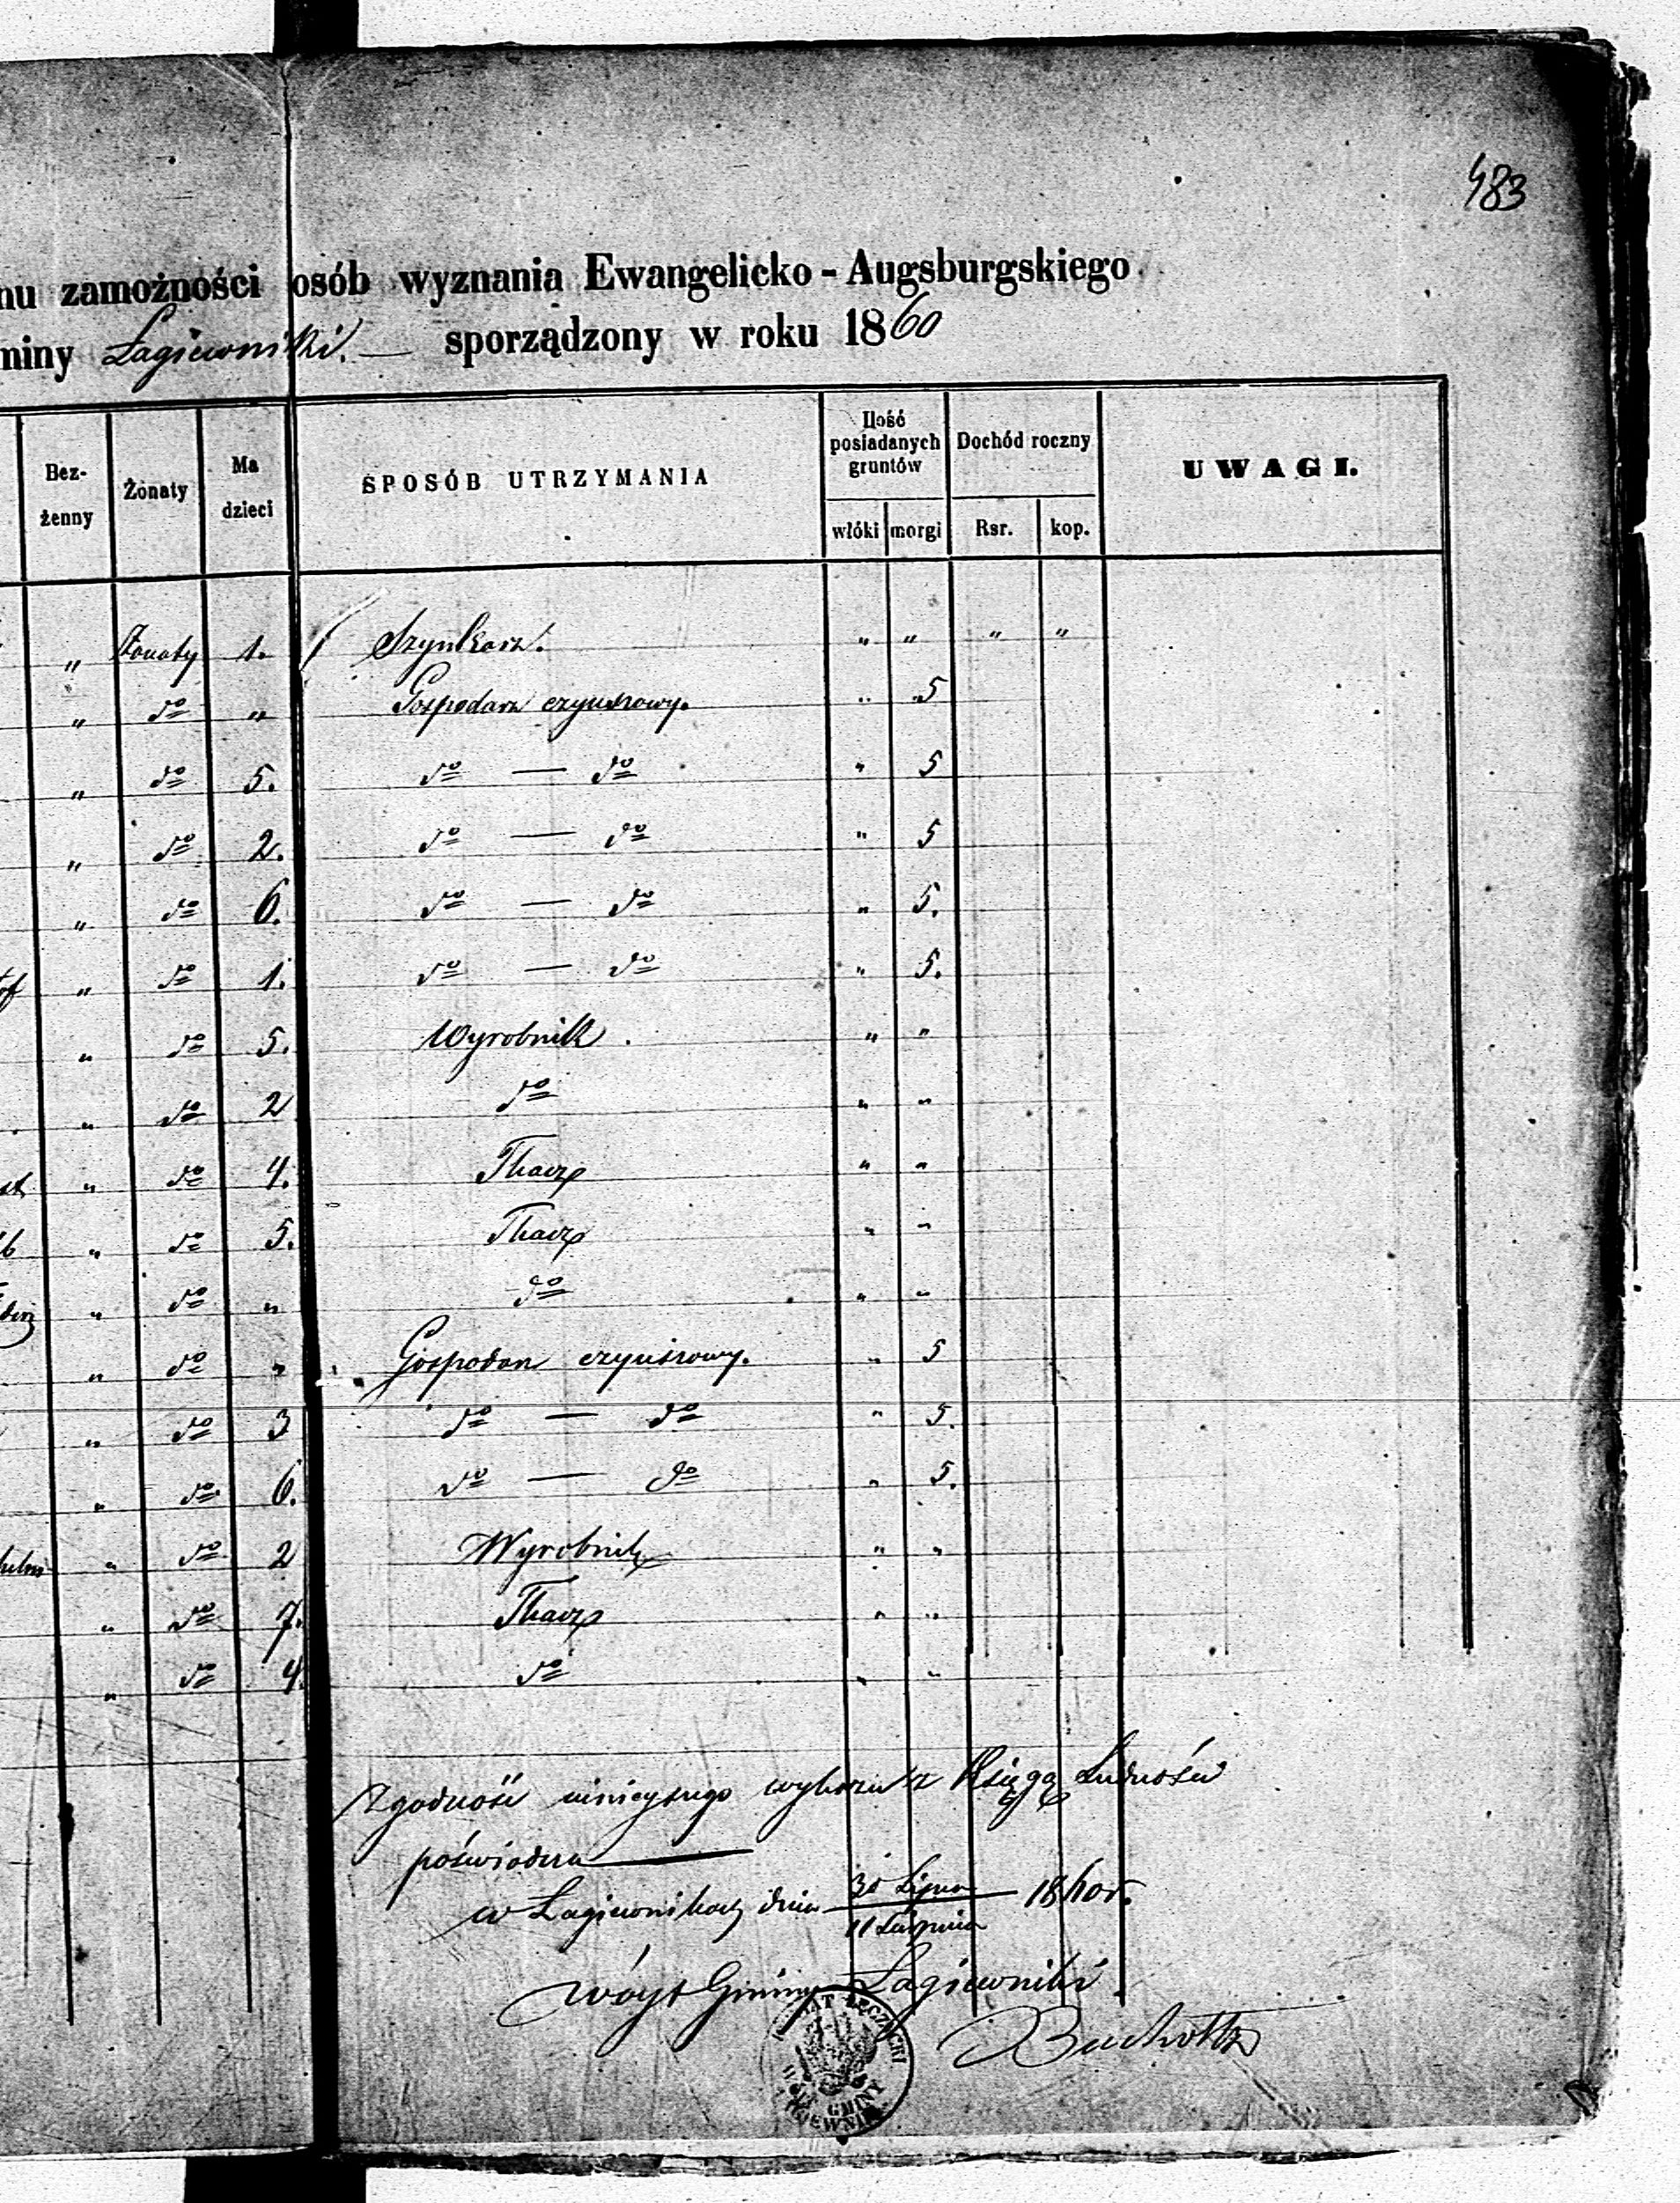 483
nu zamożności osób wyznania Ewangelicko-Augsburgskiego
miny Łagiewniki. — sporządzony w roku 1860
Bez-żenny Żonaty Ma dzieci SPOSÓB UTRZYMANIA Ilość posiadanych gruntów Dochód roczny UWAGI.
włóki morgi Rsr. kop.
" Żonaty 1. Szynkarz. " " " "
" do " Gospodarz czynszowy. " 5
" do 5. do — do " 5
" do 2. do — do " 5
" do 6. do — do " 5.
" do 1. do — do " 5.
" do 5. Wyrobnik. " "
" do 2 do " "
" do 4. Tkacz " "
" do 5. Tkacz " "
" do " do " "
" do " Gospodarz czynszowy. " 5
" do 3 do — do " 5.
" do 6. do — do " 5.
" do 2 Wyrobnik " "
" do 7. Tkacz " "
" do 4. do " "
Zgodność niniejszego wykazu z Księgą Ludności
poświadcza
w Łagiewnikach dnia 30 Lipca / 11 Sierpnia 1860 r.
Wójt Gminy Łagiewniki.
Bucholtz